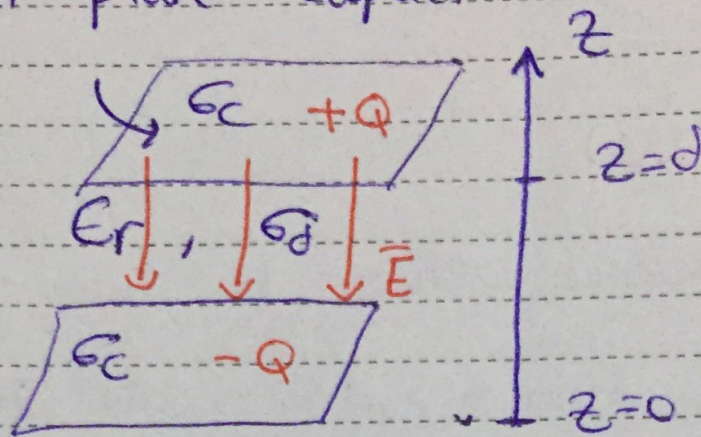 z
σc +Q
z=d
εr , σd
E̅
σc -Q
z=0